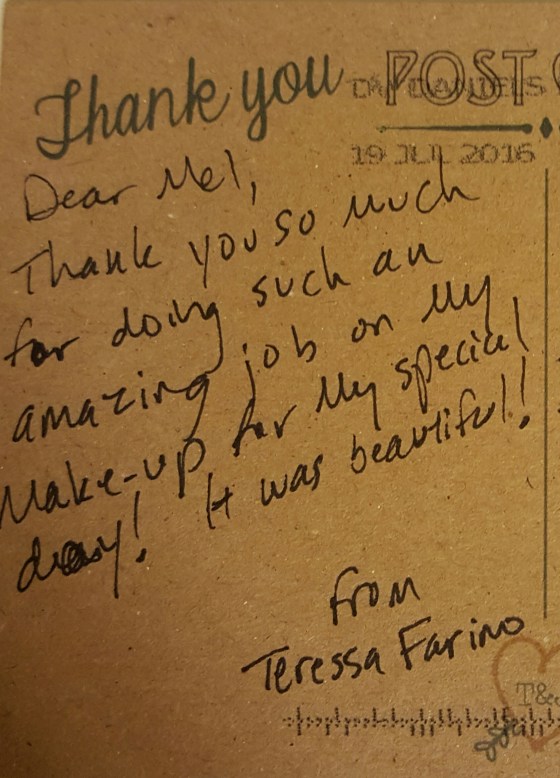 Thank you
POST
19 JUL 2016
Dear Mel,
Thank you so much
for doing such an
amazing job on My
Make-up for My special
day! It was beautiful!
from
Teressa Farino